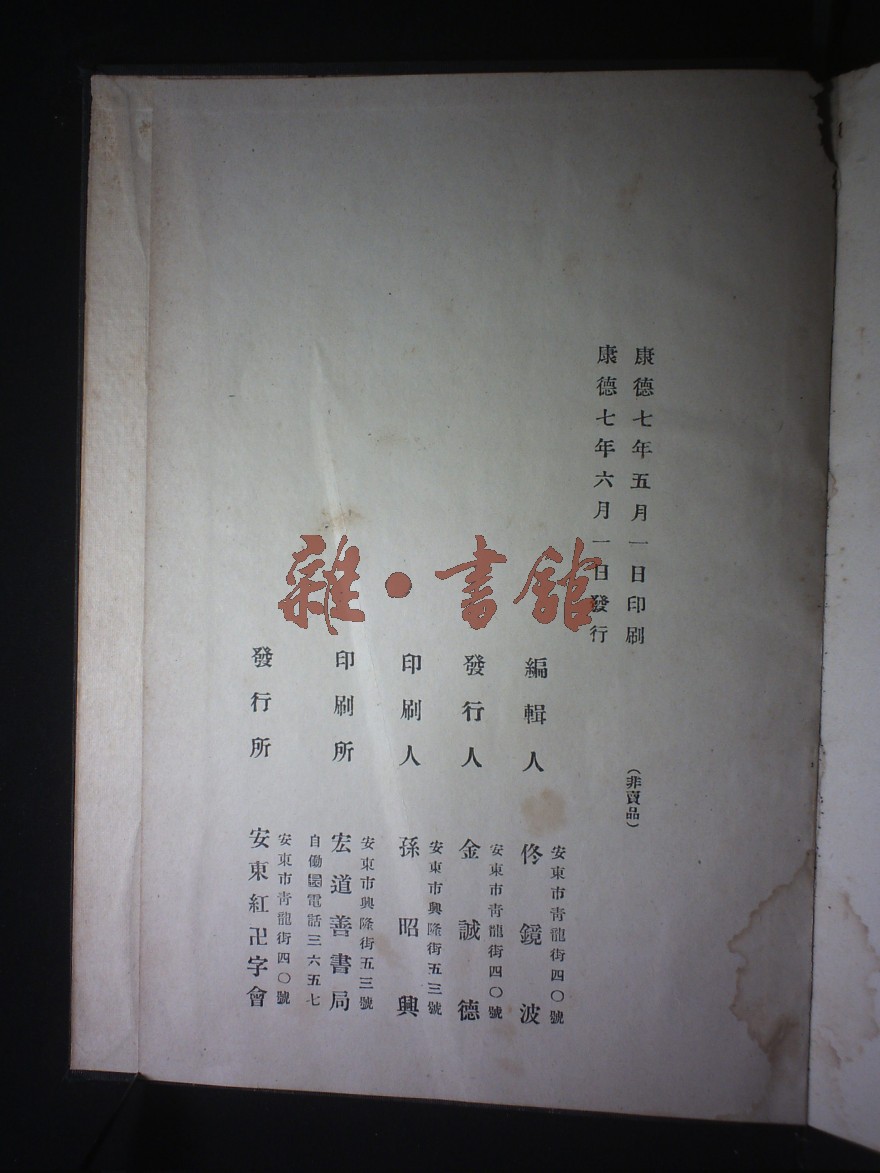 康德七年五月一日印刷
康德七年六月一日發行
(非賣品)
安東市靑龍街四〇號
編輯人 佟鏡波
安東市靑龍街四〇號
發行人 金誠德
安東市興隆街五三號
印刷人 孫昭興
安東市興隆街五三號
印刷所 宏道善書局
自働電話三六五七
安東市靑龍街四〇號
發行所 安東紅卍字會
雜·書館